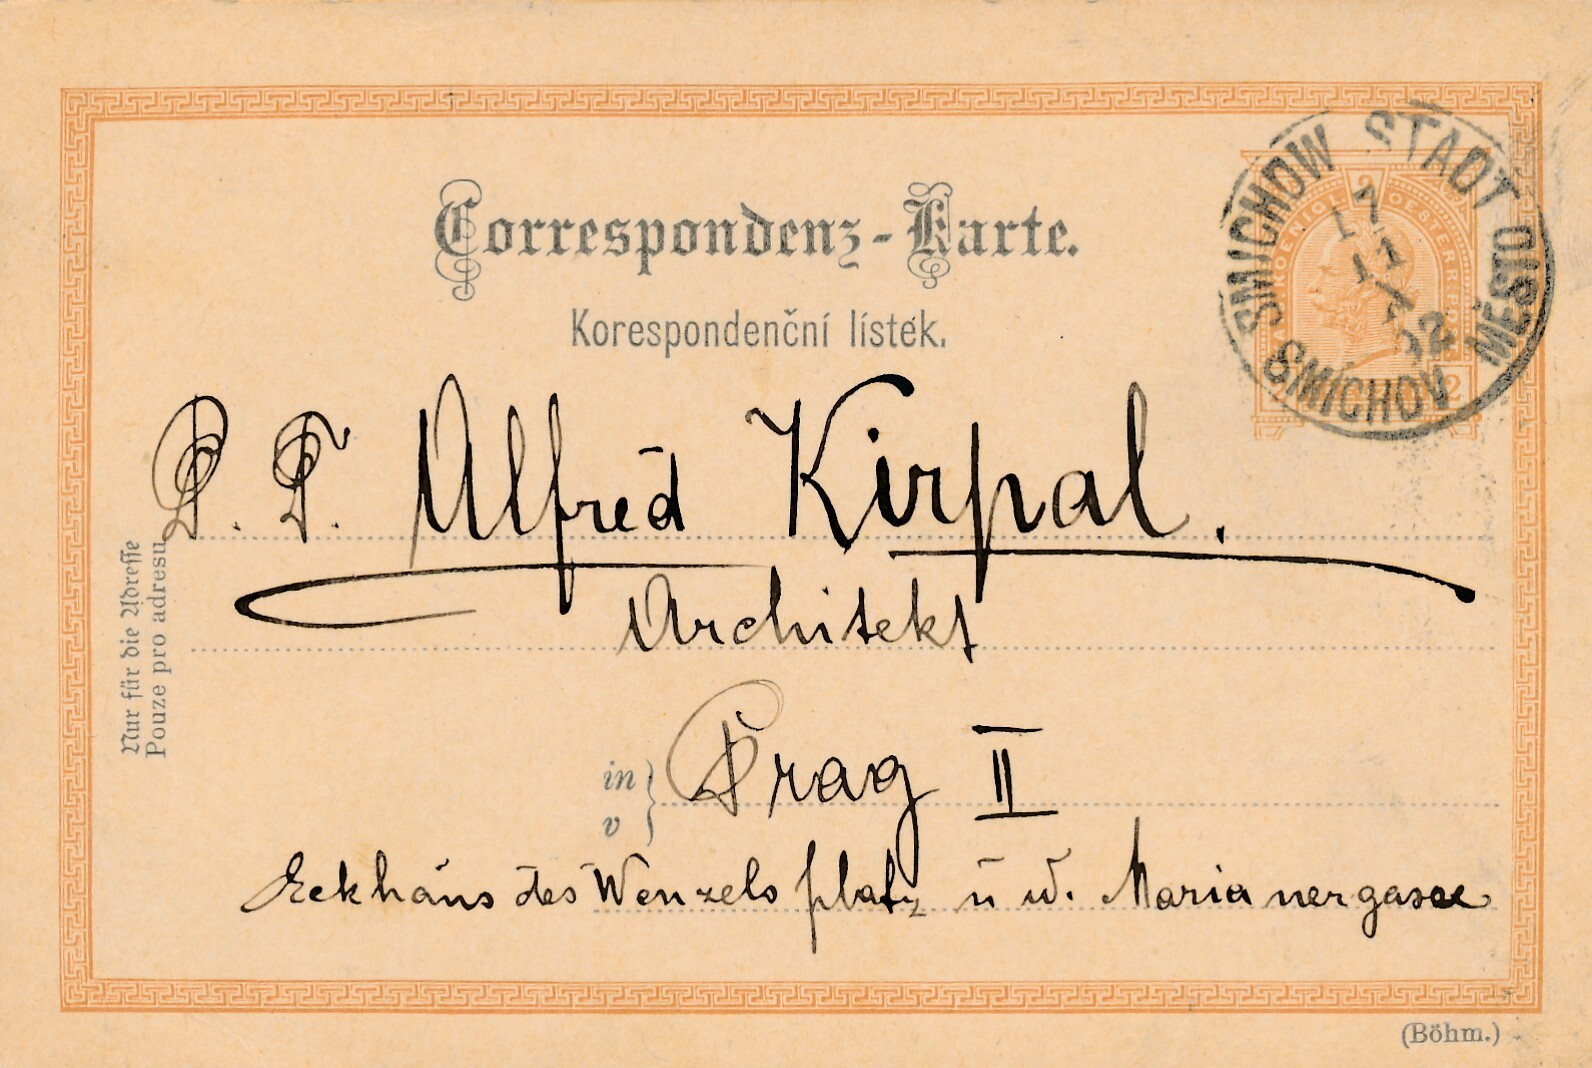 Correspondenz-Karte.
Korespondenční lístek.
SMICHOW STADT
SMÍCHOV MĚSTO
17
11
2
P. T. Alfred Kirpal.
Architekt
in
v
Prag II
Eckhaus des Wenzelsplatz u
Marianergasse
Nur für die Adresse
Pouze pro adresu
(Böhm.)